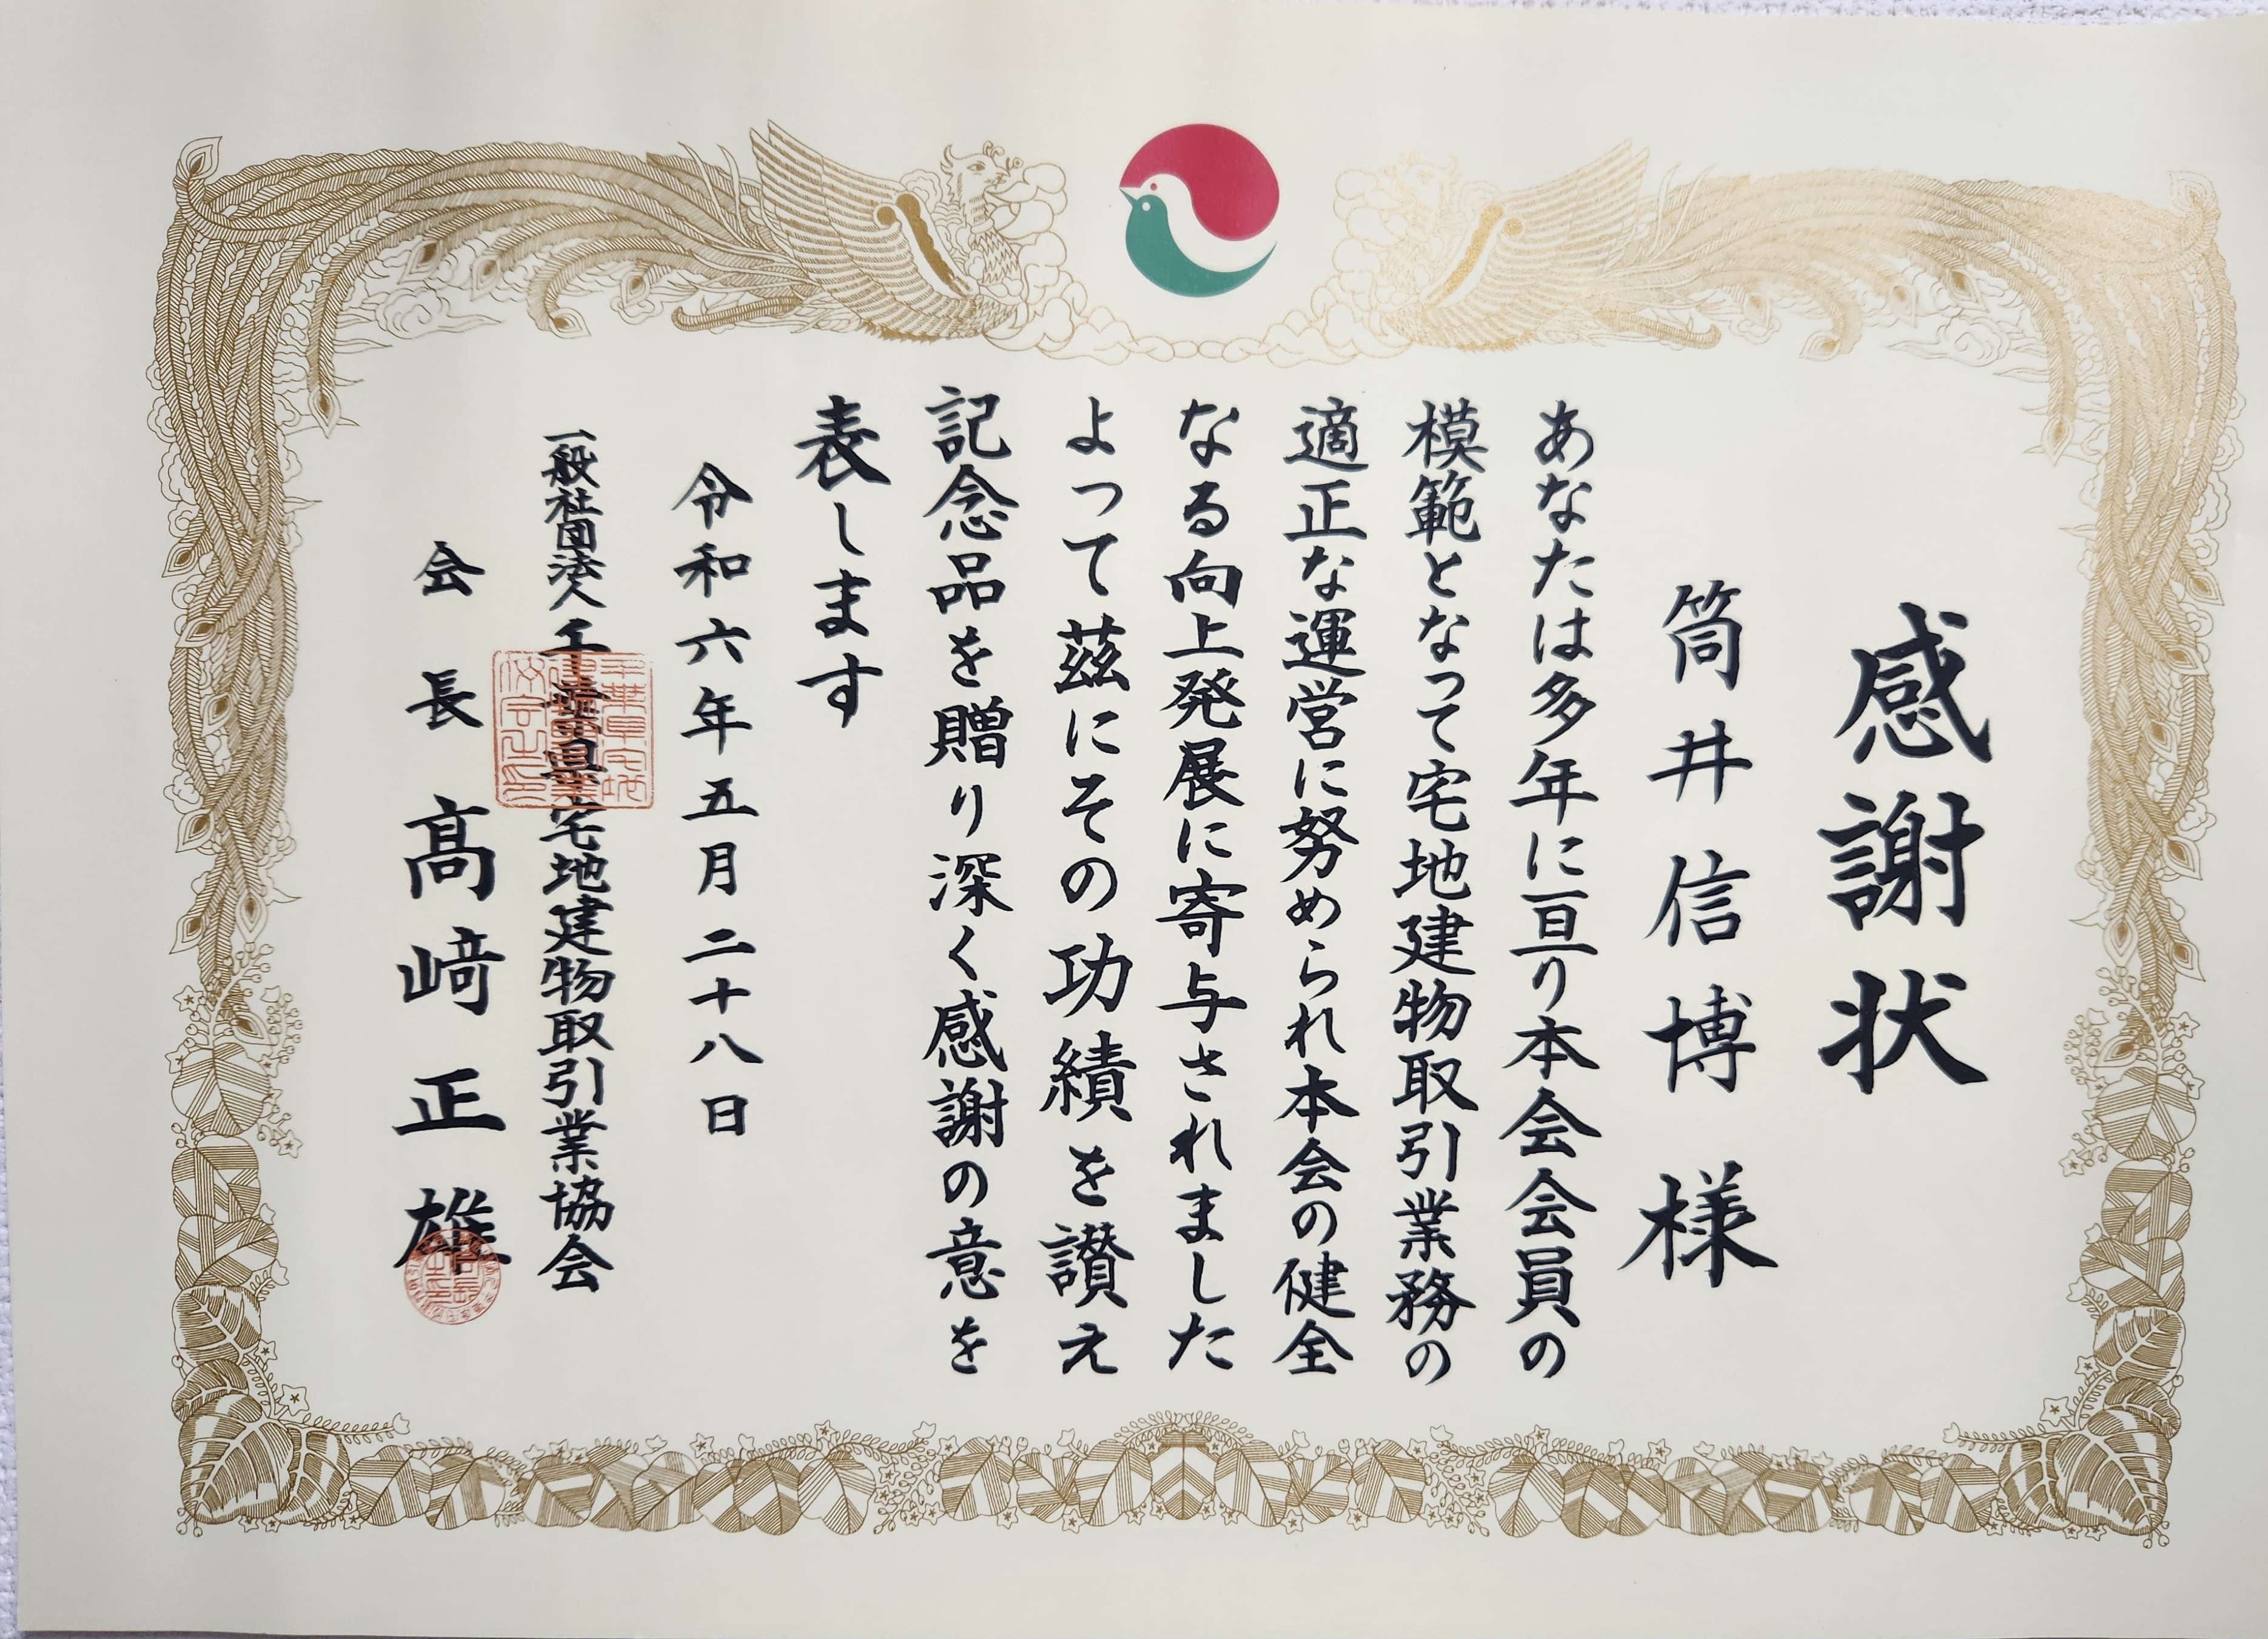 感謝状
筒井信博 様
あなたは多年に亘り本会会員の
模範となって宅地建物取引業務の
適正な運営に努められ本会の健全
なる向上発展に寄与されました
よって茲にその功績を讃え
記念品を贈り深く感謝の意を
表します
令和六年五月二十八日
一般社団法人千葉県宅地建物取引業協会
会長 髙﨑正雄